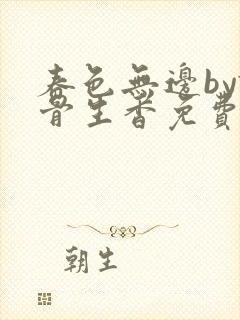 春色無邊by
骨生香免費
朝生